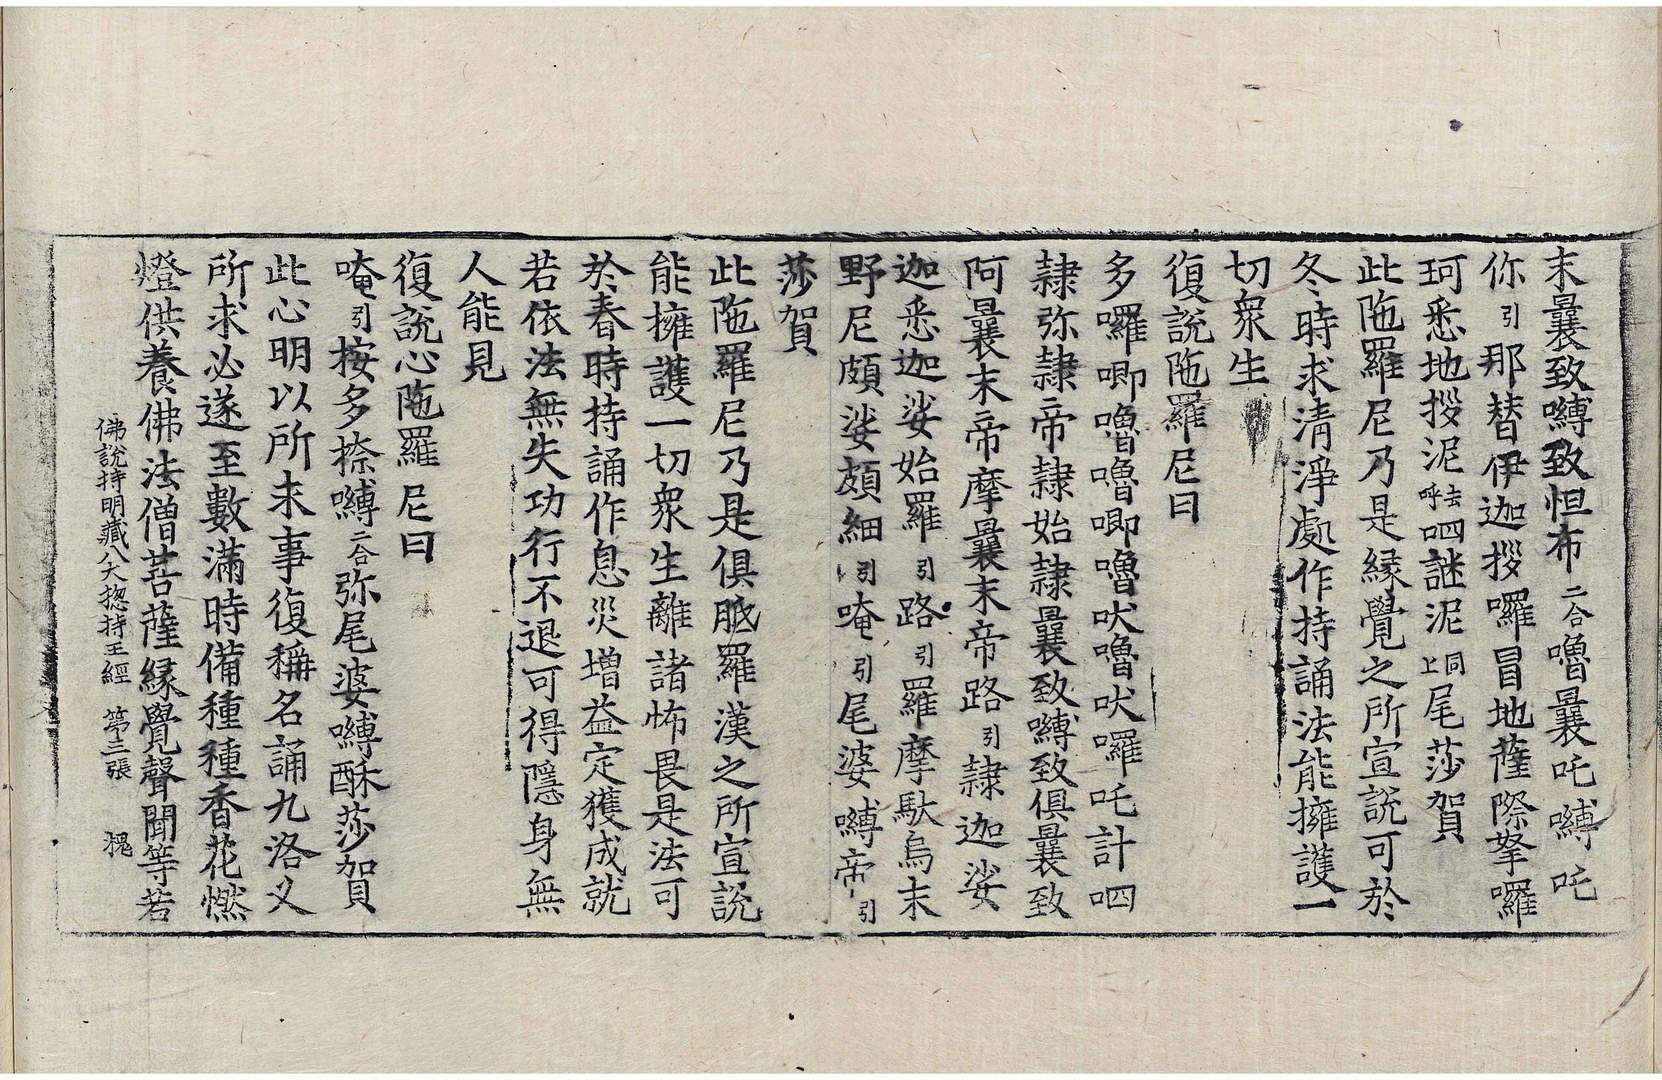 末曩致嚩致怛布二合嚕曩吒嚩吒
你引那替伊迦拶囉冐地薩際拏囉
珂悉地拶泥去呼呬謎泥同上尾莎賀
此陁羅尼乃是緣覺之所宣說可於
冬時求清淨處作持誦法能擁護一
切衆生
復說陁羅尼曰
多囉唧嚕嚕唧嚕吠嚕吠囉吒計呬
隷弥隷帝隷始隷曩致嚩致俱曩致
阿曩末帝摩曩末帝路引隷迦娑
迦悉迦娑始羅引路引羅摩馱烏末
野尼頗娑頗細引唵引尾婆嚩帝引
莎賀
此陁羅尼乃是俱胝羅漢之所宣說
能擁護一切衆生離諸怖畏是法可
於春時持誦作息災增益定獲成就
若依法無失功行不退可得隱身無
人能見
復說心陁羅尼曰
唵引按多捺嚩二合弥尾婆嚩酥莎賀
此心明以所求事復稱名誦九洛叉
所求必遂至數滿時備種種香花燃
燈供養佛法僧菩薩緣覺聲聞等若
佛說持明藏八大揔持王經 第三張 槐